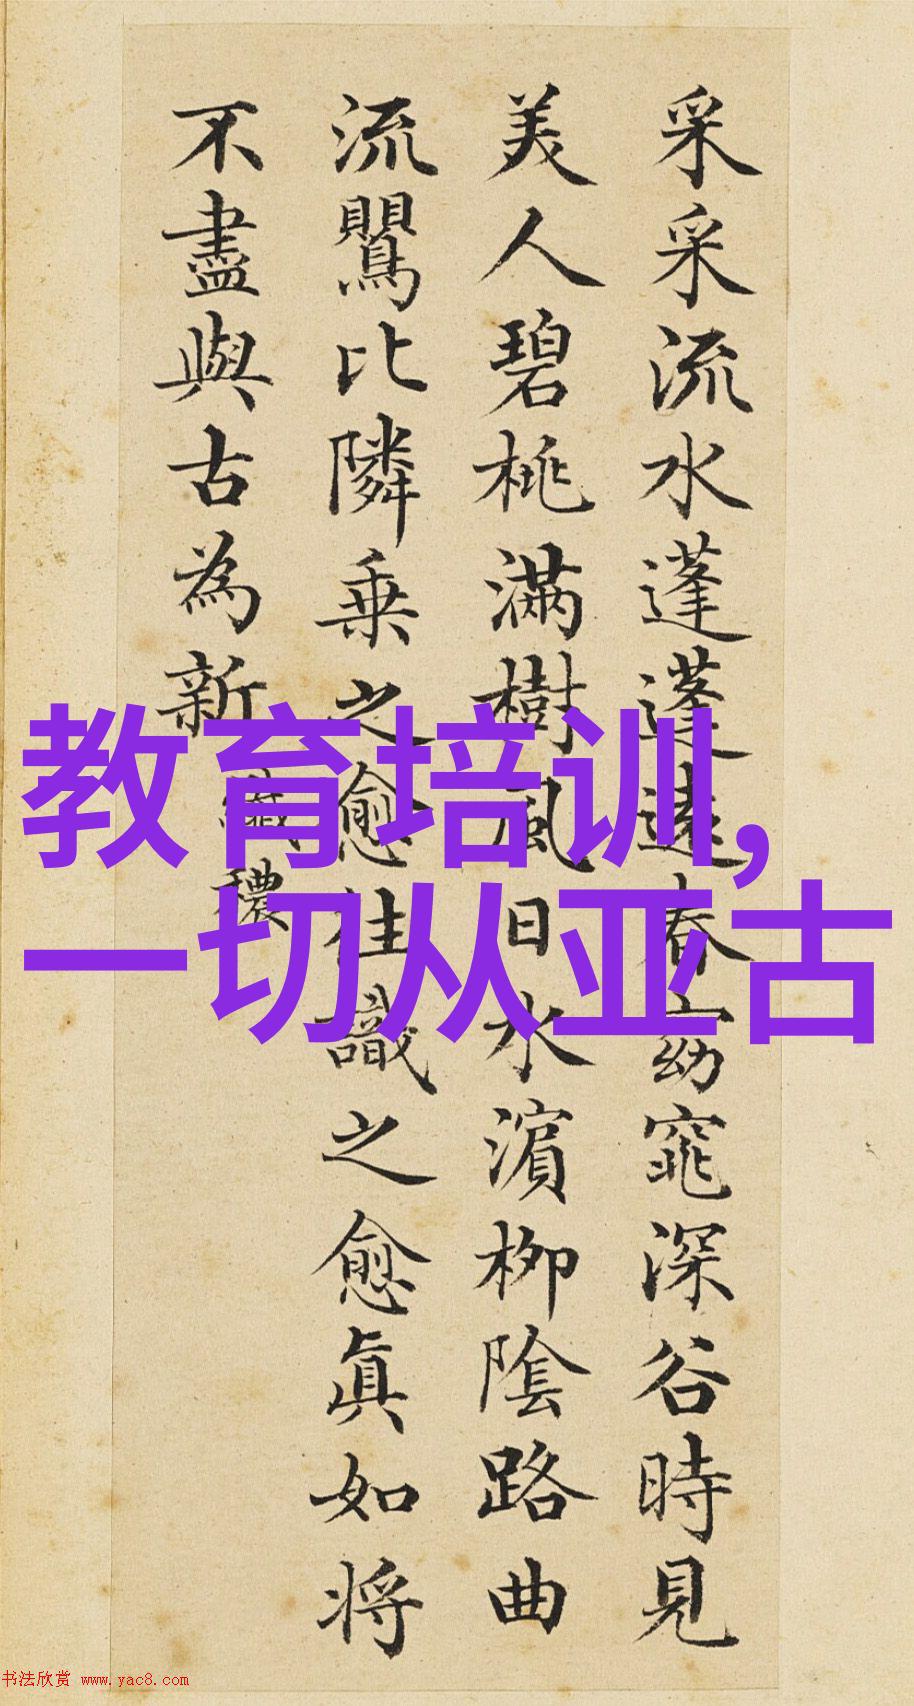 采采流水蓬蓬遠春窈窕深谷時見
美人碧桃滿樹風日水濱柳陰路曲
流鸎比隣乗之愈往識之愈眞如将
不盡與古為新 纖穠
教育培训,
一切从亚古
书法欣赏 www.yac8.com